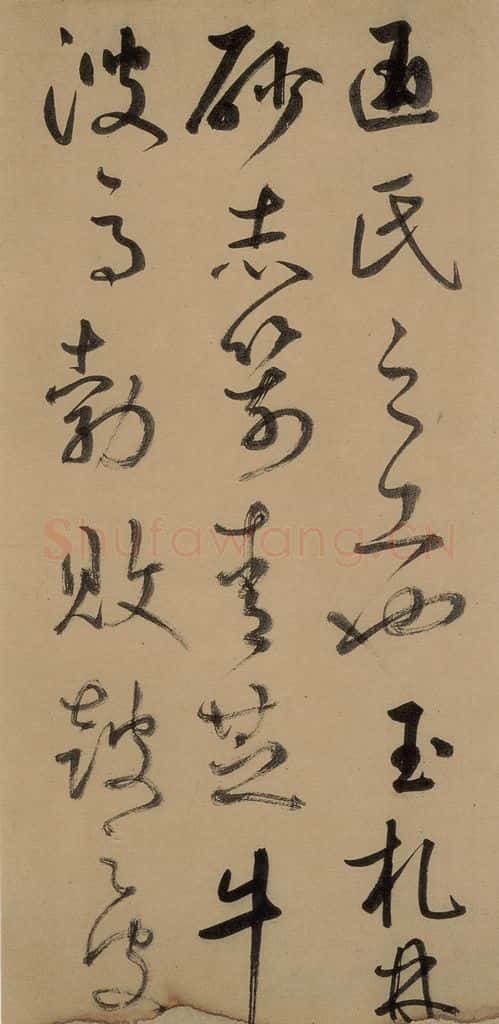 匠氏之工也玉札丹
砂赤箭青芝牛
溲馬勃敗鼓之皮
Shufawang.CN